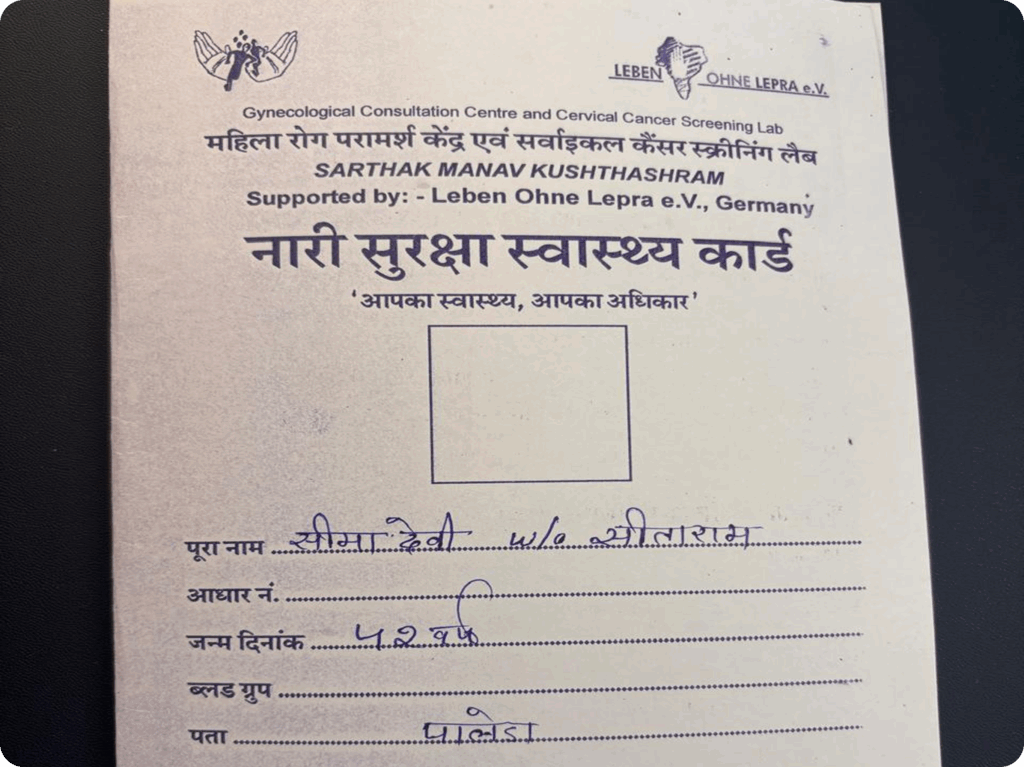 LEBEN OHNE LEPRA e.V.
Gynecological Consultation Centre and Cervical Cancer Screening Lab
महिला रोग परामर्श केंद्र एवं सर्वाइकल कैंसर स्क्रीनिंग लैब
SARTHAK MANAV KUSHTHASHRAM
Supported by: - Leben Ohne Lepra e.V., Germany
नारी सुरक्षा स्वास्थ्य कार्ड
‘आपका स्वास्थ्य, आपका अधिकार’
पूरा नाम सीमा देवी w/o सीताराम
आधार नं.
जन्म दिनांक ५२ वर्ष
ब्लड ग्रुप
पता पालेडा